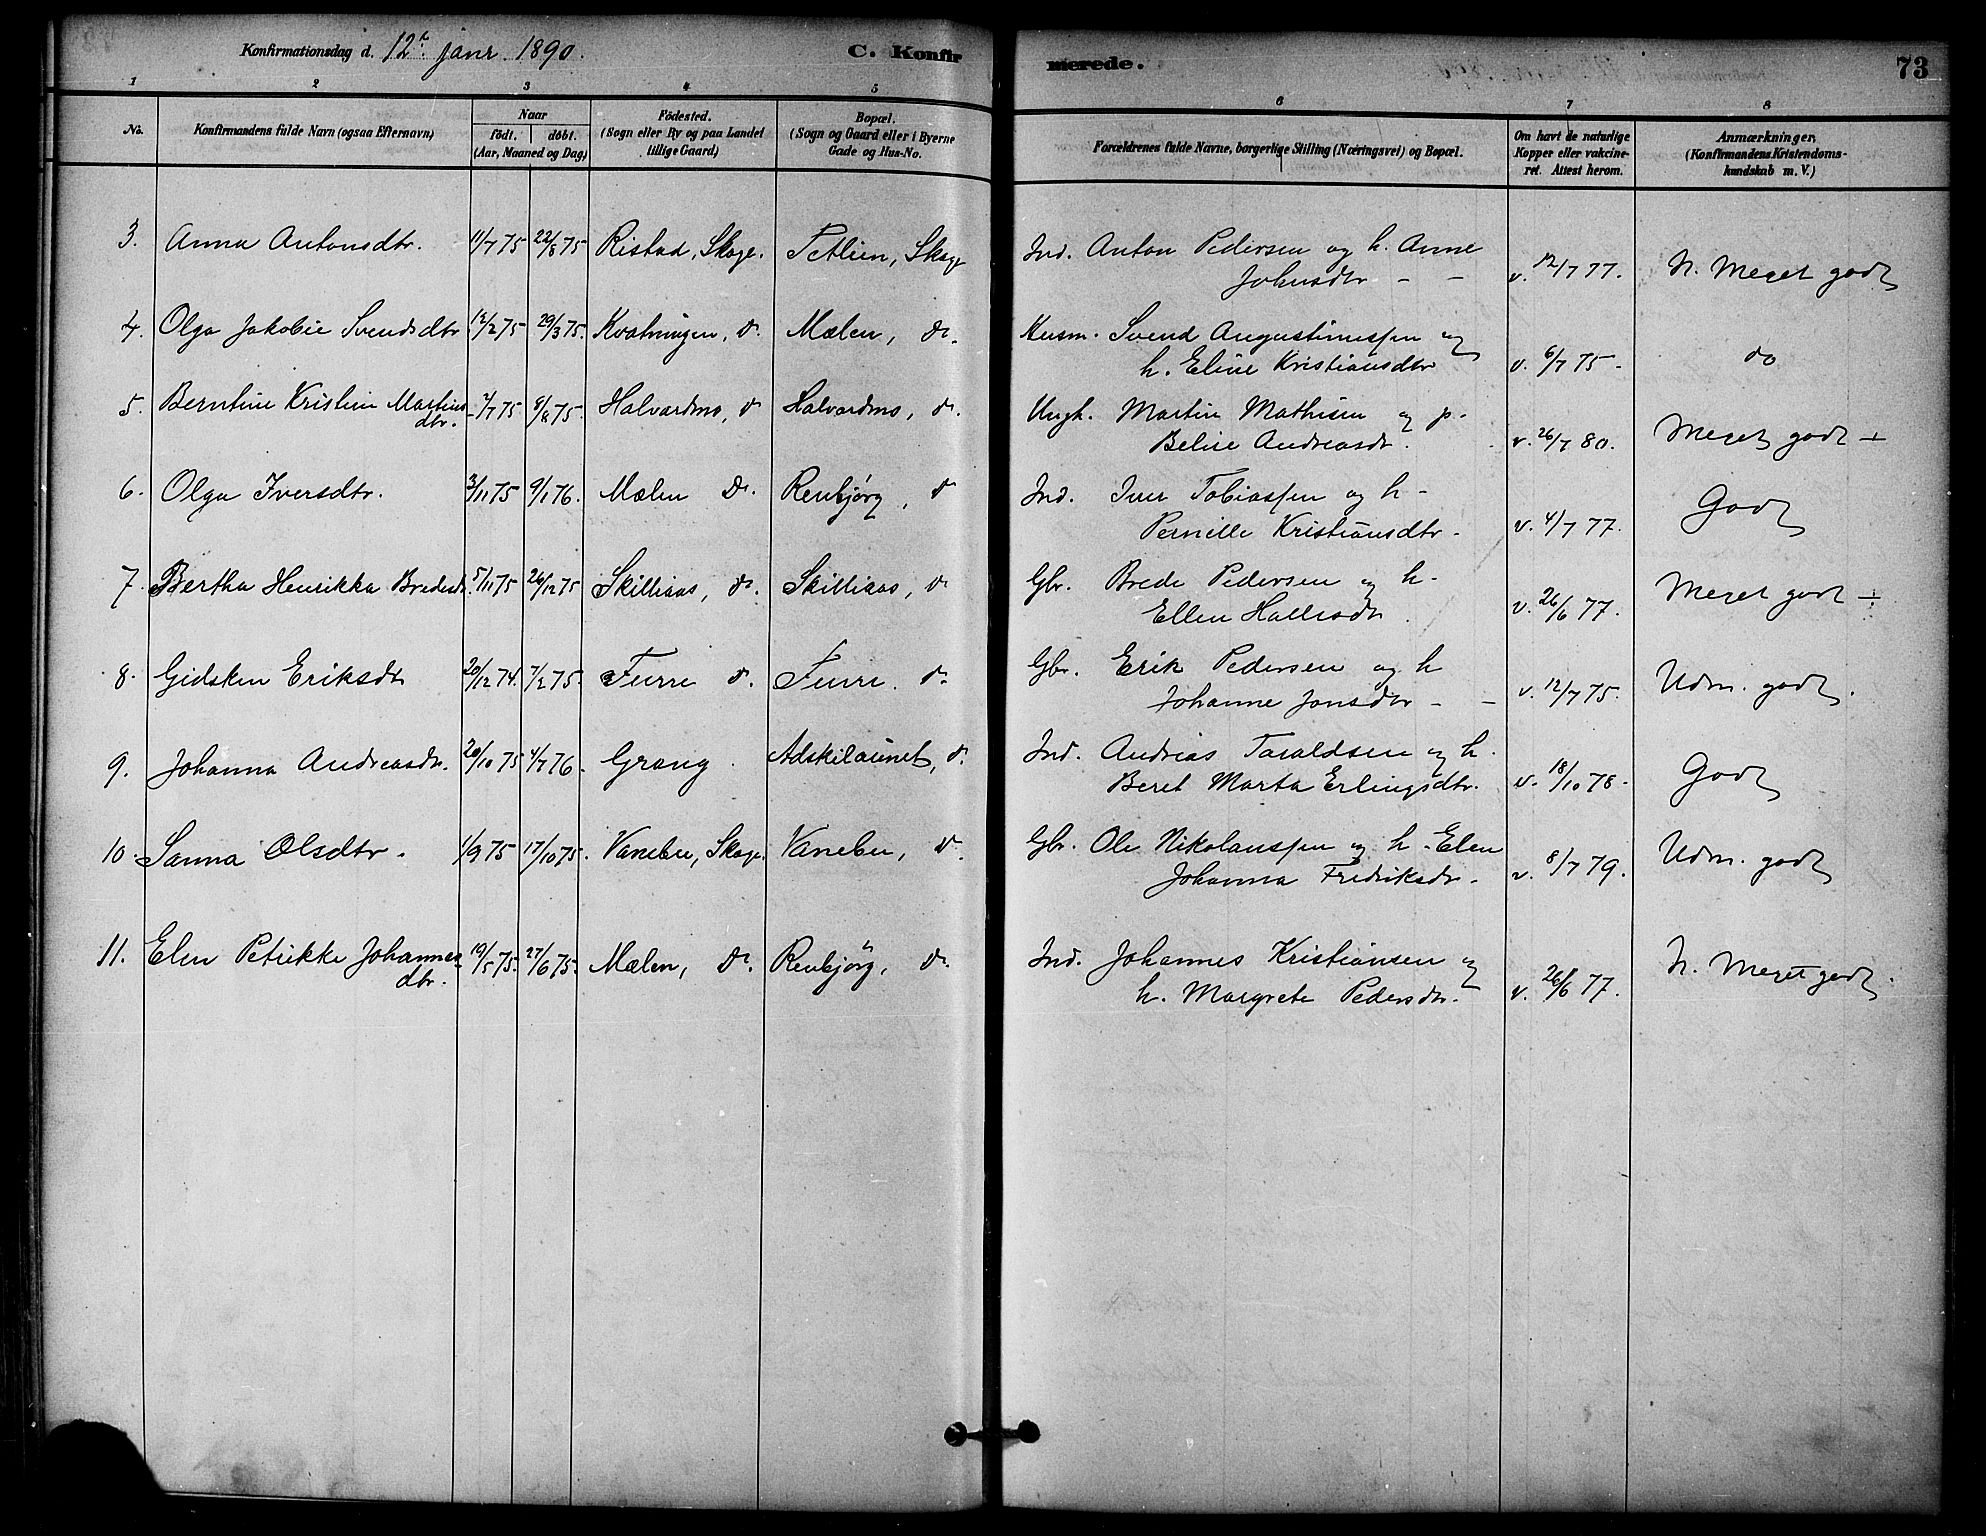 Konfirmationsdag d. 12te janr. 1890. C. Konfirmerede. 73
1 2 3 4 5 6 7 8
No. Konfirmandens fulde Navn (ogsaa Efternavn) Naar födt. döbt. (Aar, Maaned og Dag) Födested. (Sogn eller By og paa Landet tillige Gaard) Bopæl. (Sogn og Gaard eller i Byerne Gade og Hus-No. Forældrenes fulde Navne, borgerlige Stilling (Næringsvei) og Bopæl. Om havt de naturlige Kopper eller vakcineret. Attest herom. Anmærkninger, (Konfirmandens Kristendomskundskab m.V.)
3. Anna Antonsdtr. 11/7 75 22/8 75 Ristad, Skage. Tetlien, Skage Ind. Anton Pedersen og h. Anne
Johnsdtr - - v. 12/7 77. N. Meget godt
4. Olga Jakobie Svendsdtr 12/2 75 29/3 75. Kvatningen, do. Mælen, do. Husm. Svend Augustinussen og
h. Eline Kristiansdtr v. 6/7 75 - do
5. Berntine Kristine Martinsdtr. 2/7 75 8/8 75. Halvardmo, do Halvardmo, do. Ungk. Martin Mathisen og p.
Beline Andreasdr. v. 26/7 80. Meget godt ÷
6. Olga Iversdtr. 3/11 75 9/1 76. Mælen Do. Renbjörg, do Ind. Iver Tobiassen og h -
Pernille Kristiansdtr - v. 4/7 77. Godt
7. Bertha Henrikka Bredesdr. 5/11 75 26/12 75 Skilliaas, do. Skilliaas, do Gbr. Brede Pedersen og h -
Ellen Hallesdr. v. 26/6 77. Meget godt ÷
8. Gidsken Eriksdtr 20/12 74. 7/2 75. Furre do. Furre. do. Gbr. Erik Pedersen og h
Johanne Jonsdtr - - v. 12/7 75. Udm. godt.
9. Johanna Andreasdr. 20/10 75 4/7 76. Grong. Adskilaunet, do. Ind. Andreas Taraldsen og h.
Beret Marta Erlingsdtr. v. 18/10 78. Godt
10. Sanna Olsdtr. 1/9 75 17/10 75. Vanebu, Skage. Vanebu, do. Gbr. Ole Nikolaussen og h - Elen
Johanna Fredriksdr. v. 8/7 79. Udm. godt
11. Elen Petrikke Johannesdtr. 19/5 75. 27/6 75. Mælen, Do. Renbjörg, do. Ind. Johannes Kristiansen og
h. Margrete Pedersdr. v. 26/6 77. N. Meget godt.